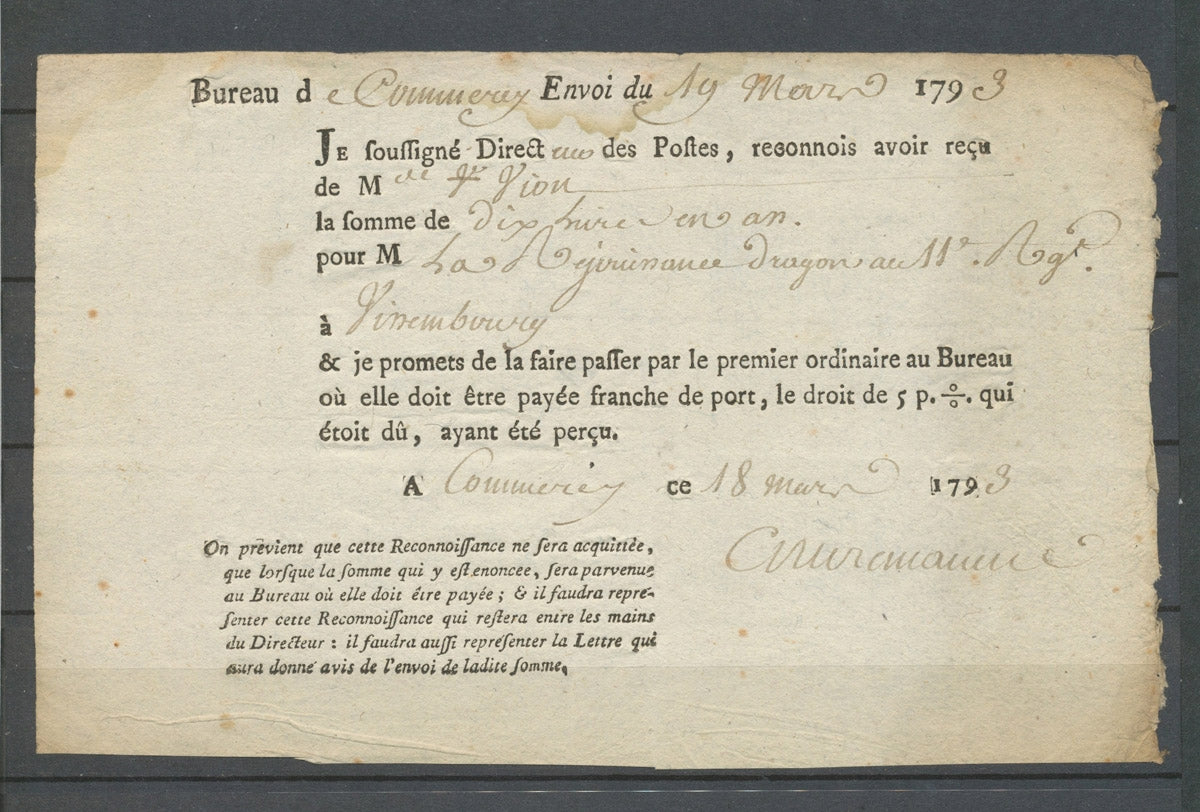 Bureau de Commercy Envoi du 19 Mars 1793
JE ſouſſigné Direct des Poſtes, reconnois avoir reçu
de M Vion
la ſomme de dix livres en an.
pour M La dragon au 11e. Rgt.
à Vissembourg
& je promets de la faire paſſer par le premier ordinaire au Bureau
où elle doit être payée franche de port, le droit de 5 p. %. qui
étoit dû, ayant été perçu.
A Commercy ce 18 mars 1793
On prévient que cette Reconnoiſſance ne ſera acquittée,
que lorſque la ſomme qui y eſt enoncee, ſera parvenue
au Bureau où elle doit être payée; & il faudra repré-
ſenter cette Reconnoiſſance qui reſtera entre les mains
du Directeur : il faudra auſſi repréſenter la Lettre qui
aura donné avis de l'envoi de ladite ſomme.